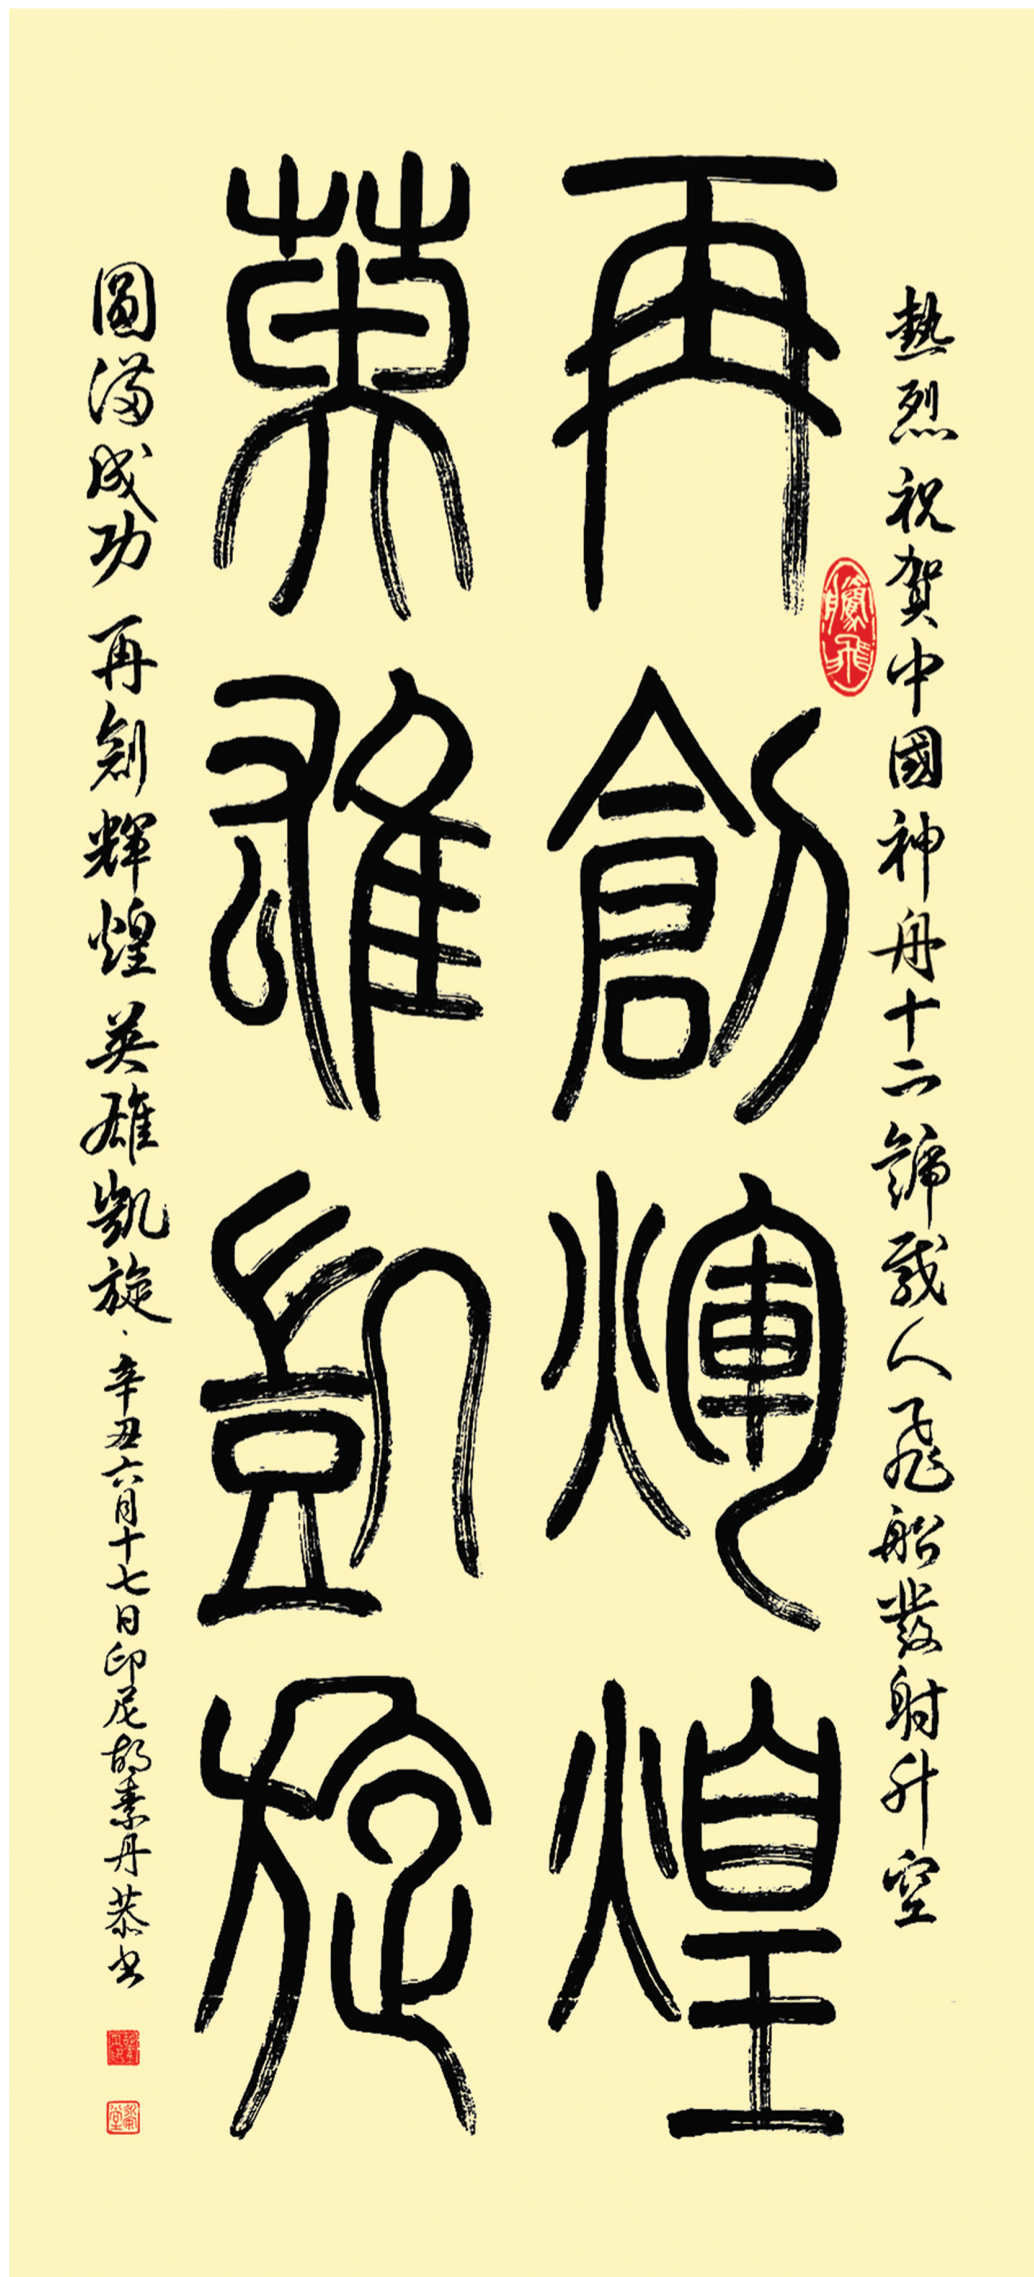 熱烈祝賀中國神舟十二號載人飛船發射升空
再創輝煌
英雄凱旋
圓滿成功再創輝煌英雄凱旋·辛丑六月十七日印尼胡素丹恭书
騰飛